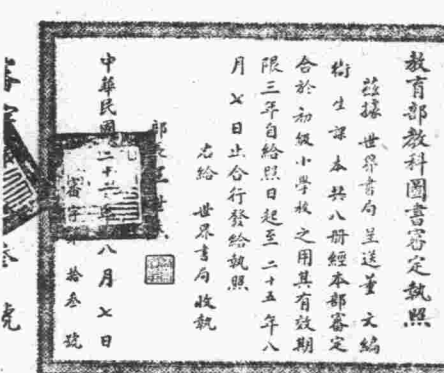 教育部教科圖書審定執照
茲據世界書局呈送董文編
衛生課本共八册經本部審定
合於初級小學校之用其有效期
限三年自給照日起至二十五年八
月七日止合行發給執照
右給世界書局收執
部長王世
中華民國二十二年八月七日
審字第拾叁號